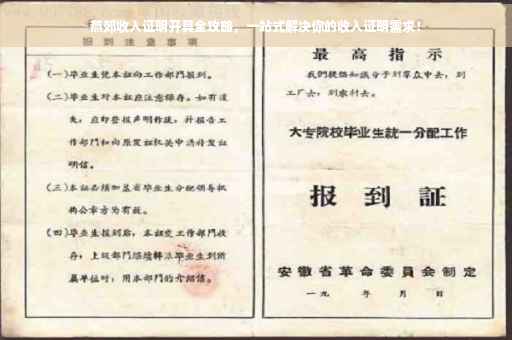 燕郊收入证明开具全攻略，一站式解决你的收入证明需求！
报到注意事项
(一)毕业生凭本证向工作部门报到。
(二)毕业生对本证应注意保存。如有遗
失，应即登报声明作废，并报告工
作部门和向原发证机关申请补发证
明信。
(三)本证必须加盖省毕业生分配领导机
构公章方为有效。
(四)毕业生报到后，本证交工作部门收
存，上级部门继续转派毕业生到所
属单位时，用本部门的介绍信。
最高指示
我们提倡知识分子到群众中去，到
工厂去，到农村去。
大专院校毕业生统一分配工作
报到证
安徽省革命委员会制定
一九 年 月 日